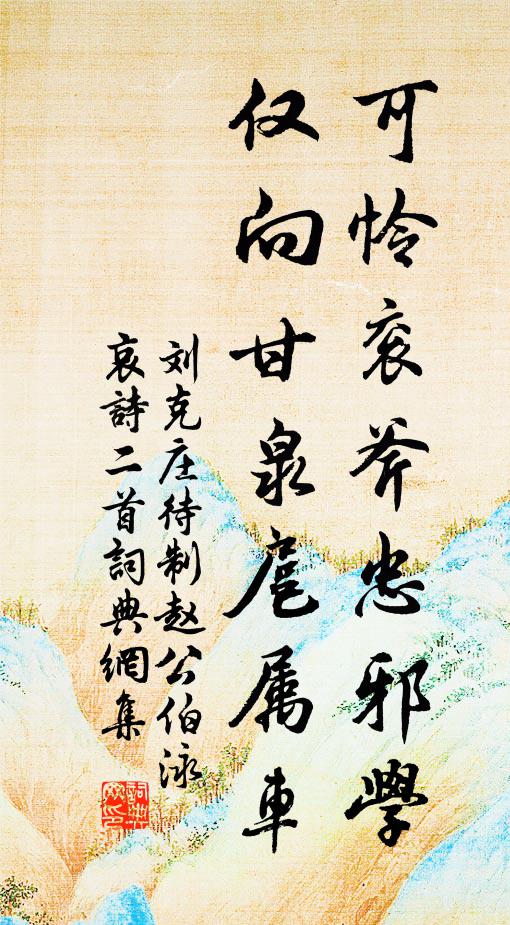 可怜衮斧忠邪學
仅向甘泉扈属車
刘克庄待制赵公伯泳
哀詩二首詞典網集